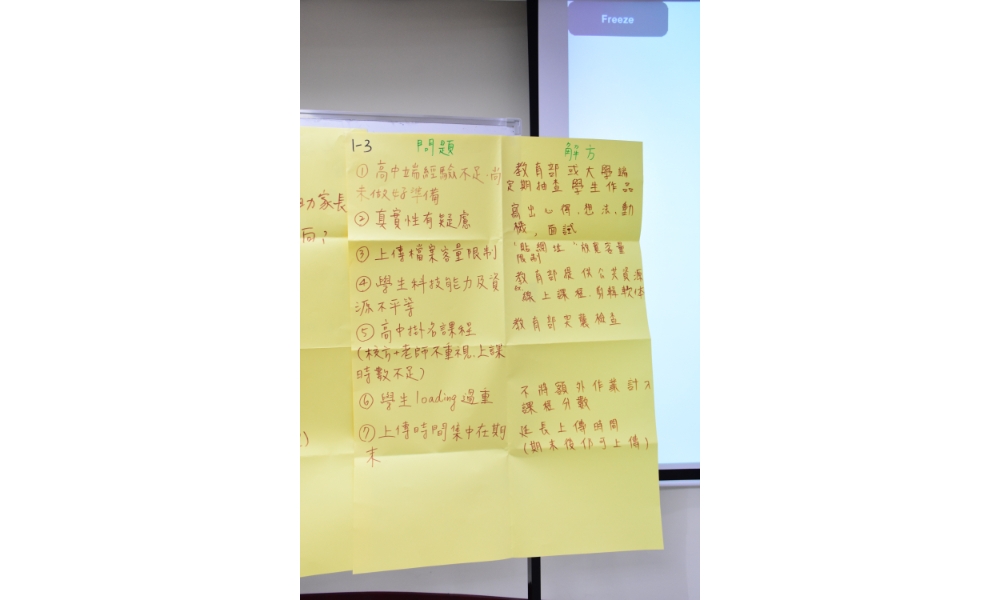 Freeze
1-3
問題
解方
①高中端經驗不足,尚
未做好準備
②真實性有疑慮
③上傳檔案容量限制
④學生科技能力及資
源不平等
⑤高中掛名課程
(校方+老師不重視,上課
時數不足)
⑥學生loading過重
⑦上傳時間集中在期
末
教育部或大學端
定期抽查學生作品
寫出心得、想法、動
機,面試
"貼網址"放寬容量
限制
教育部提供公共資源
線上課程、剪輯軟體
教育部突襲檢查
不將額外作業計入
課程分數
延長上傳時間
(期末後仍可上傳)
家長